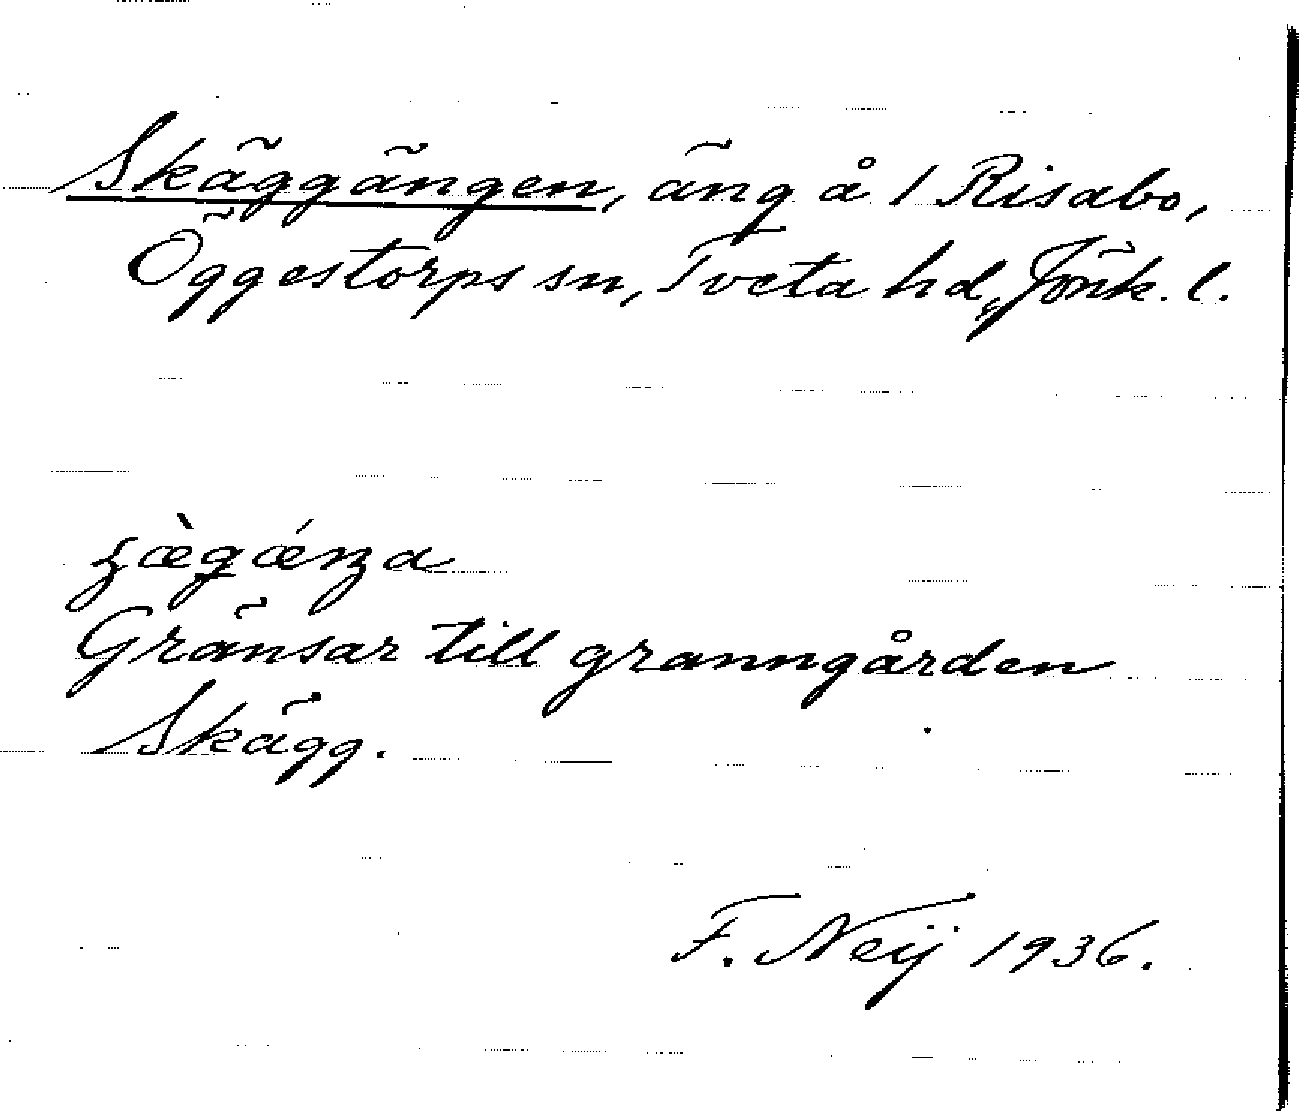 Skäggängen, äng å 1 Risabo,
Öggestorps sn, Tveta hd, Jönk. l.
Gränsar till granngården
Skägg.
F. Neij 1936.